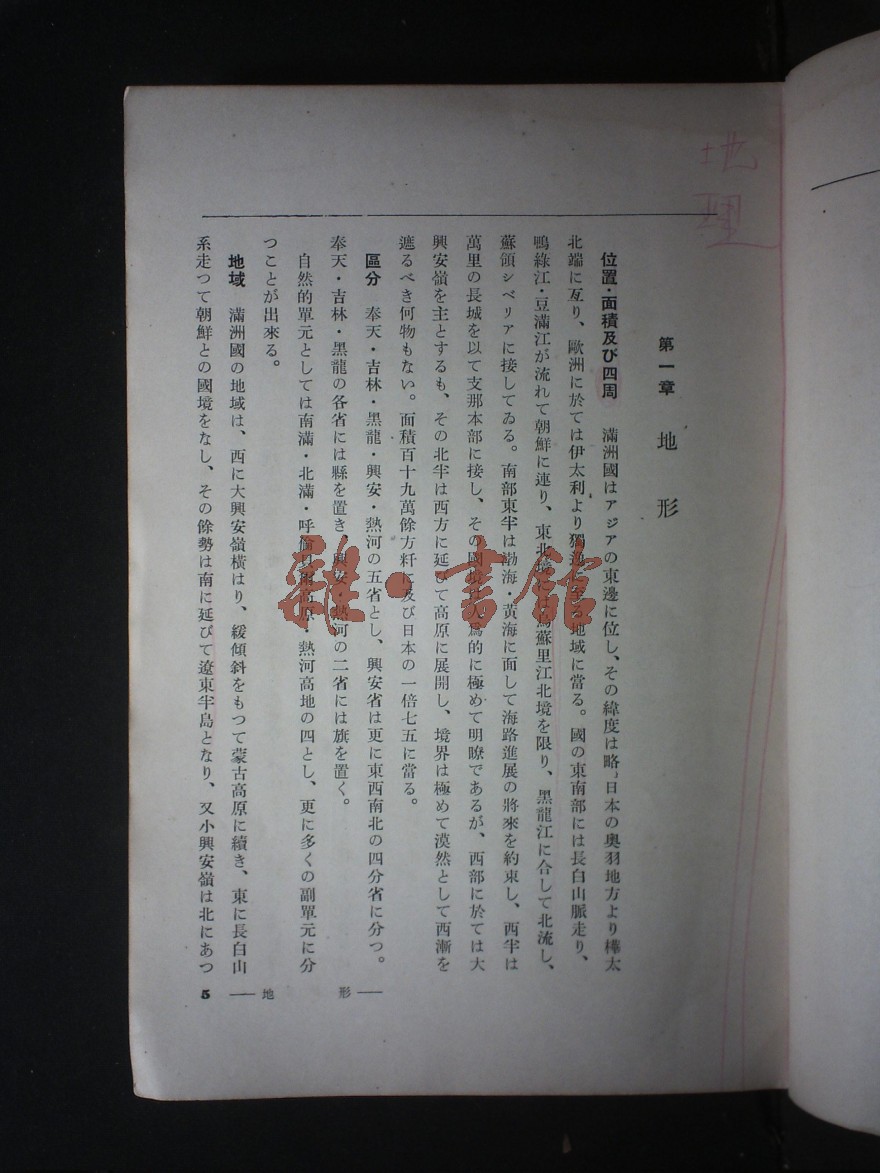 地理
第一章 地形
位置・面積及び四周 滿洲國はアジアの東邊に位し、その緯度は略〻日本の奥羽地方より樺太
北端に亙り、歐洲に於ては伊太利より獨逸に至る地域に當る。國の東南部には長白山脈走り、
鴨綠江・豆滿江が流れて朝鮮に連り、東北境には烏蘇里江北境を限り、黑龍江に合して北流し、
蘇領シベリアに接してゐる。南部東半は渤海・黃海に面して海路進展の將來を約束し、西半は
萬里の長城を以て支那本部に接し、その國境は人爲的に極めて明瞭であるが、西部に於ては大
興安嶺を主とするも、その北半は西方に延びて高原に展開し、境界は極めて漠然として西漸を
遮るべき何物もない。面積百十九萬餘方粁に及び日本の一倍七五に當る。
區分 奉天・吉林・黑龍・興安・熱河の五省とし、興安省は更に東西南北の四分省に分つ。
奉天・吉林・黑龍の各省には縣を置き、興安・熱河の二省には旗を置く。
自然的單元としては南滿・北滿・呼倫貝爾高原・熱河高地の四とし、更に多くの副單元に分
つことが出來る。
地域 滿洲國の地域は、西に大興安嶺橫はり、緩傾斜をもつて蒙古高原に續き、東に長白山
系走つて朝鮮との國境をなし、その餘勢は南に延びて遼東半島となり、又小興安嶺は北にあつ
雜・書館
形 地 5